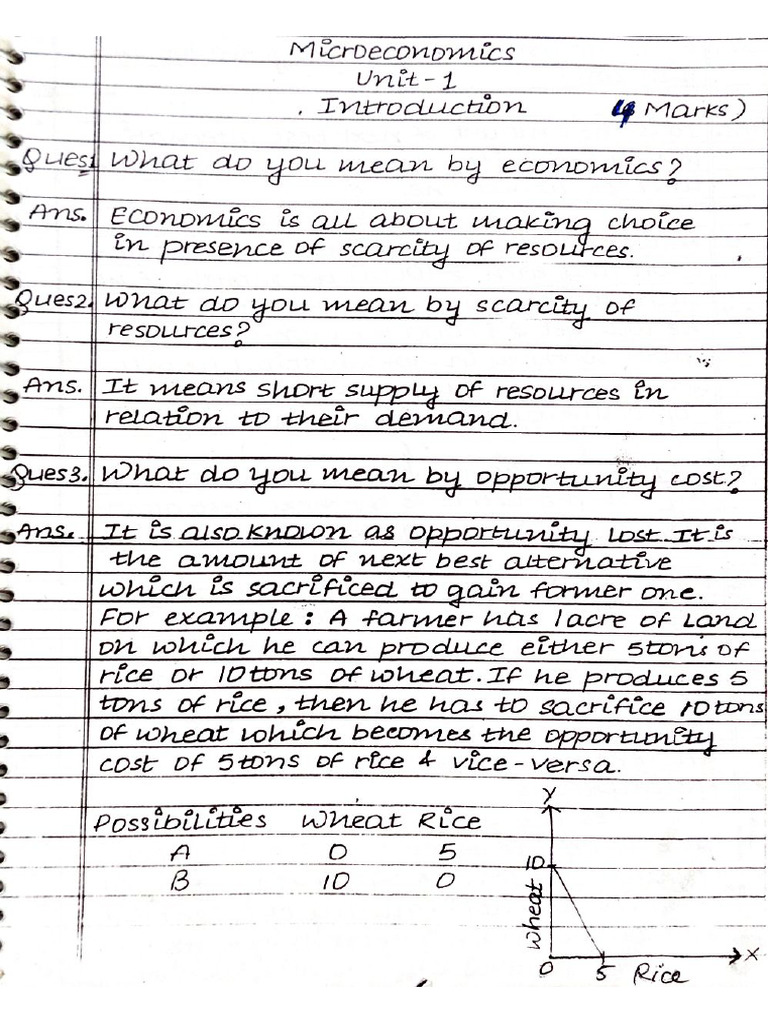 Microeconomics
Unit-1
Introduction 4 Marks)
Ques1 What do you mean by economics?
Ans. Economics is all about making choice
in presence of scarcity of resources.
Ques2. What do you mean by scarcity of
resources?
Ans. It means short supply of resources in
relation to their demand.
Ques3. What do you mean by opportunity cost?
Ans. It is also known as opportunity lost. It is
the amount of next best alternative
which is sacrificed to gain former one.
For example: A farmer has 1acre of Land
on which he can produce either 5tons of
rice or 10tons of wheat. If he produces 5
tons of rice, then he has to sacrifice 10tons
of wheat which becomes the opportunity
cost of 5tons of rice & vice-versa.
Possibilities Wheat Rice
A 0 5
B 10 0
Y
10
Wheat
0 5 Rice X